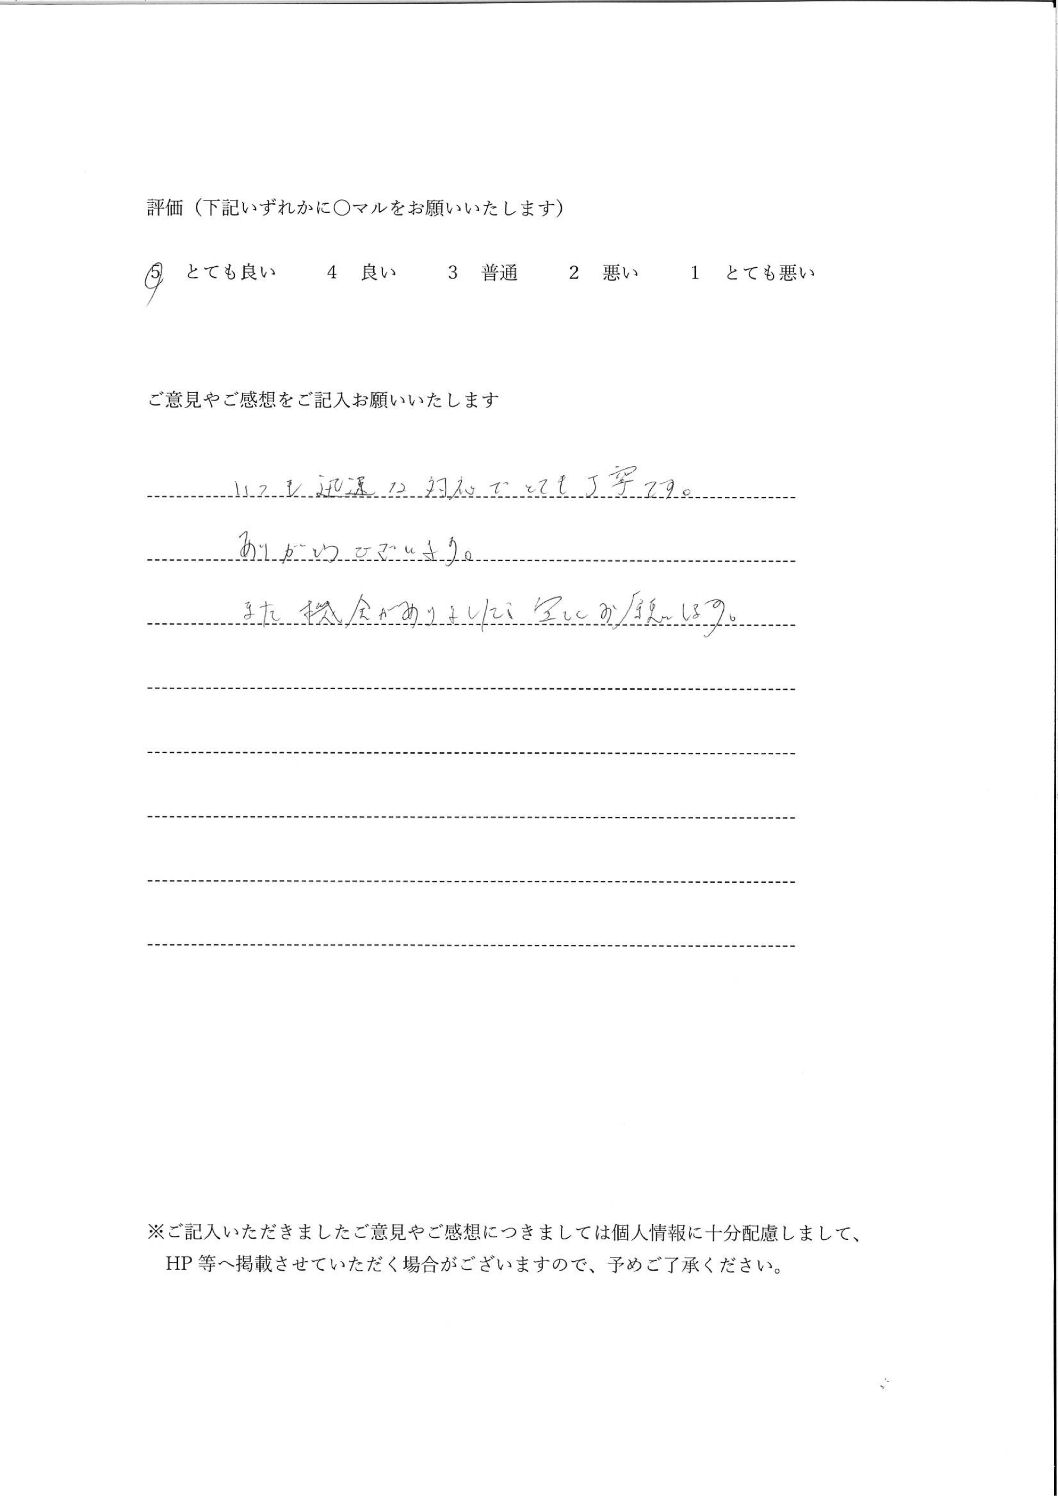 評価（下記いずれかに〇マルをお願いいたします）
5 とても良い 4 良い 3 普通 2 悪い 1 とても悪い
ご意見やご感想をご記入お願いいたします
いつも迅速な対応でとても丁寧です。
ありがとうございます。
また機会がありましたら宜しくお願いします。
※ご記入いただきましたご意見やご感想につきましては個人情報に十分配慮しまして、
HP等へ掲載させていただく場合がございますので、予めご了承ください。